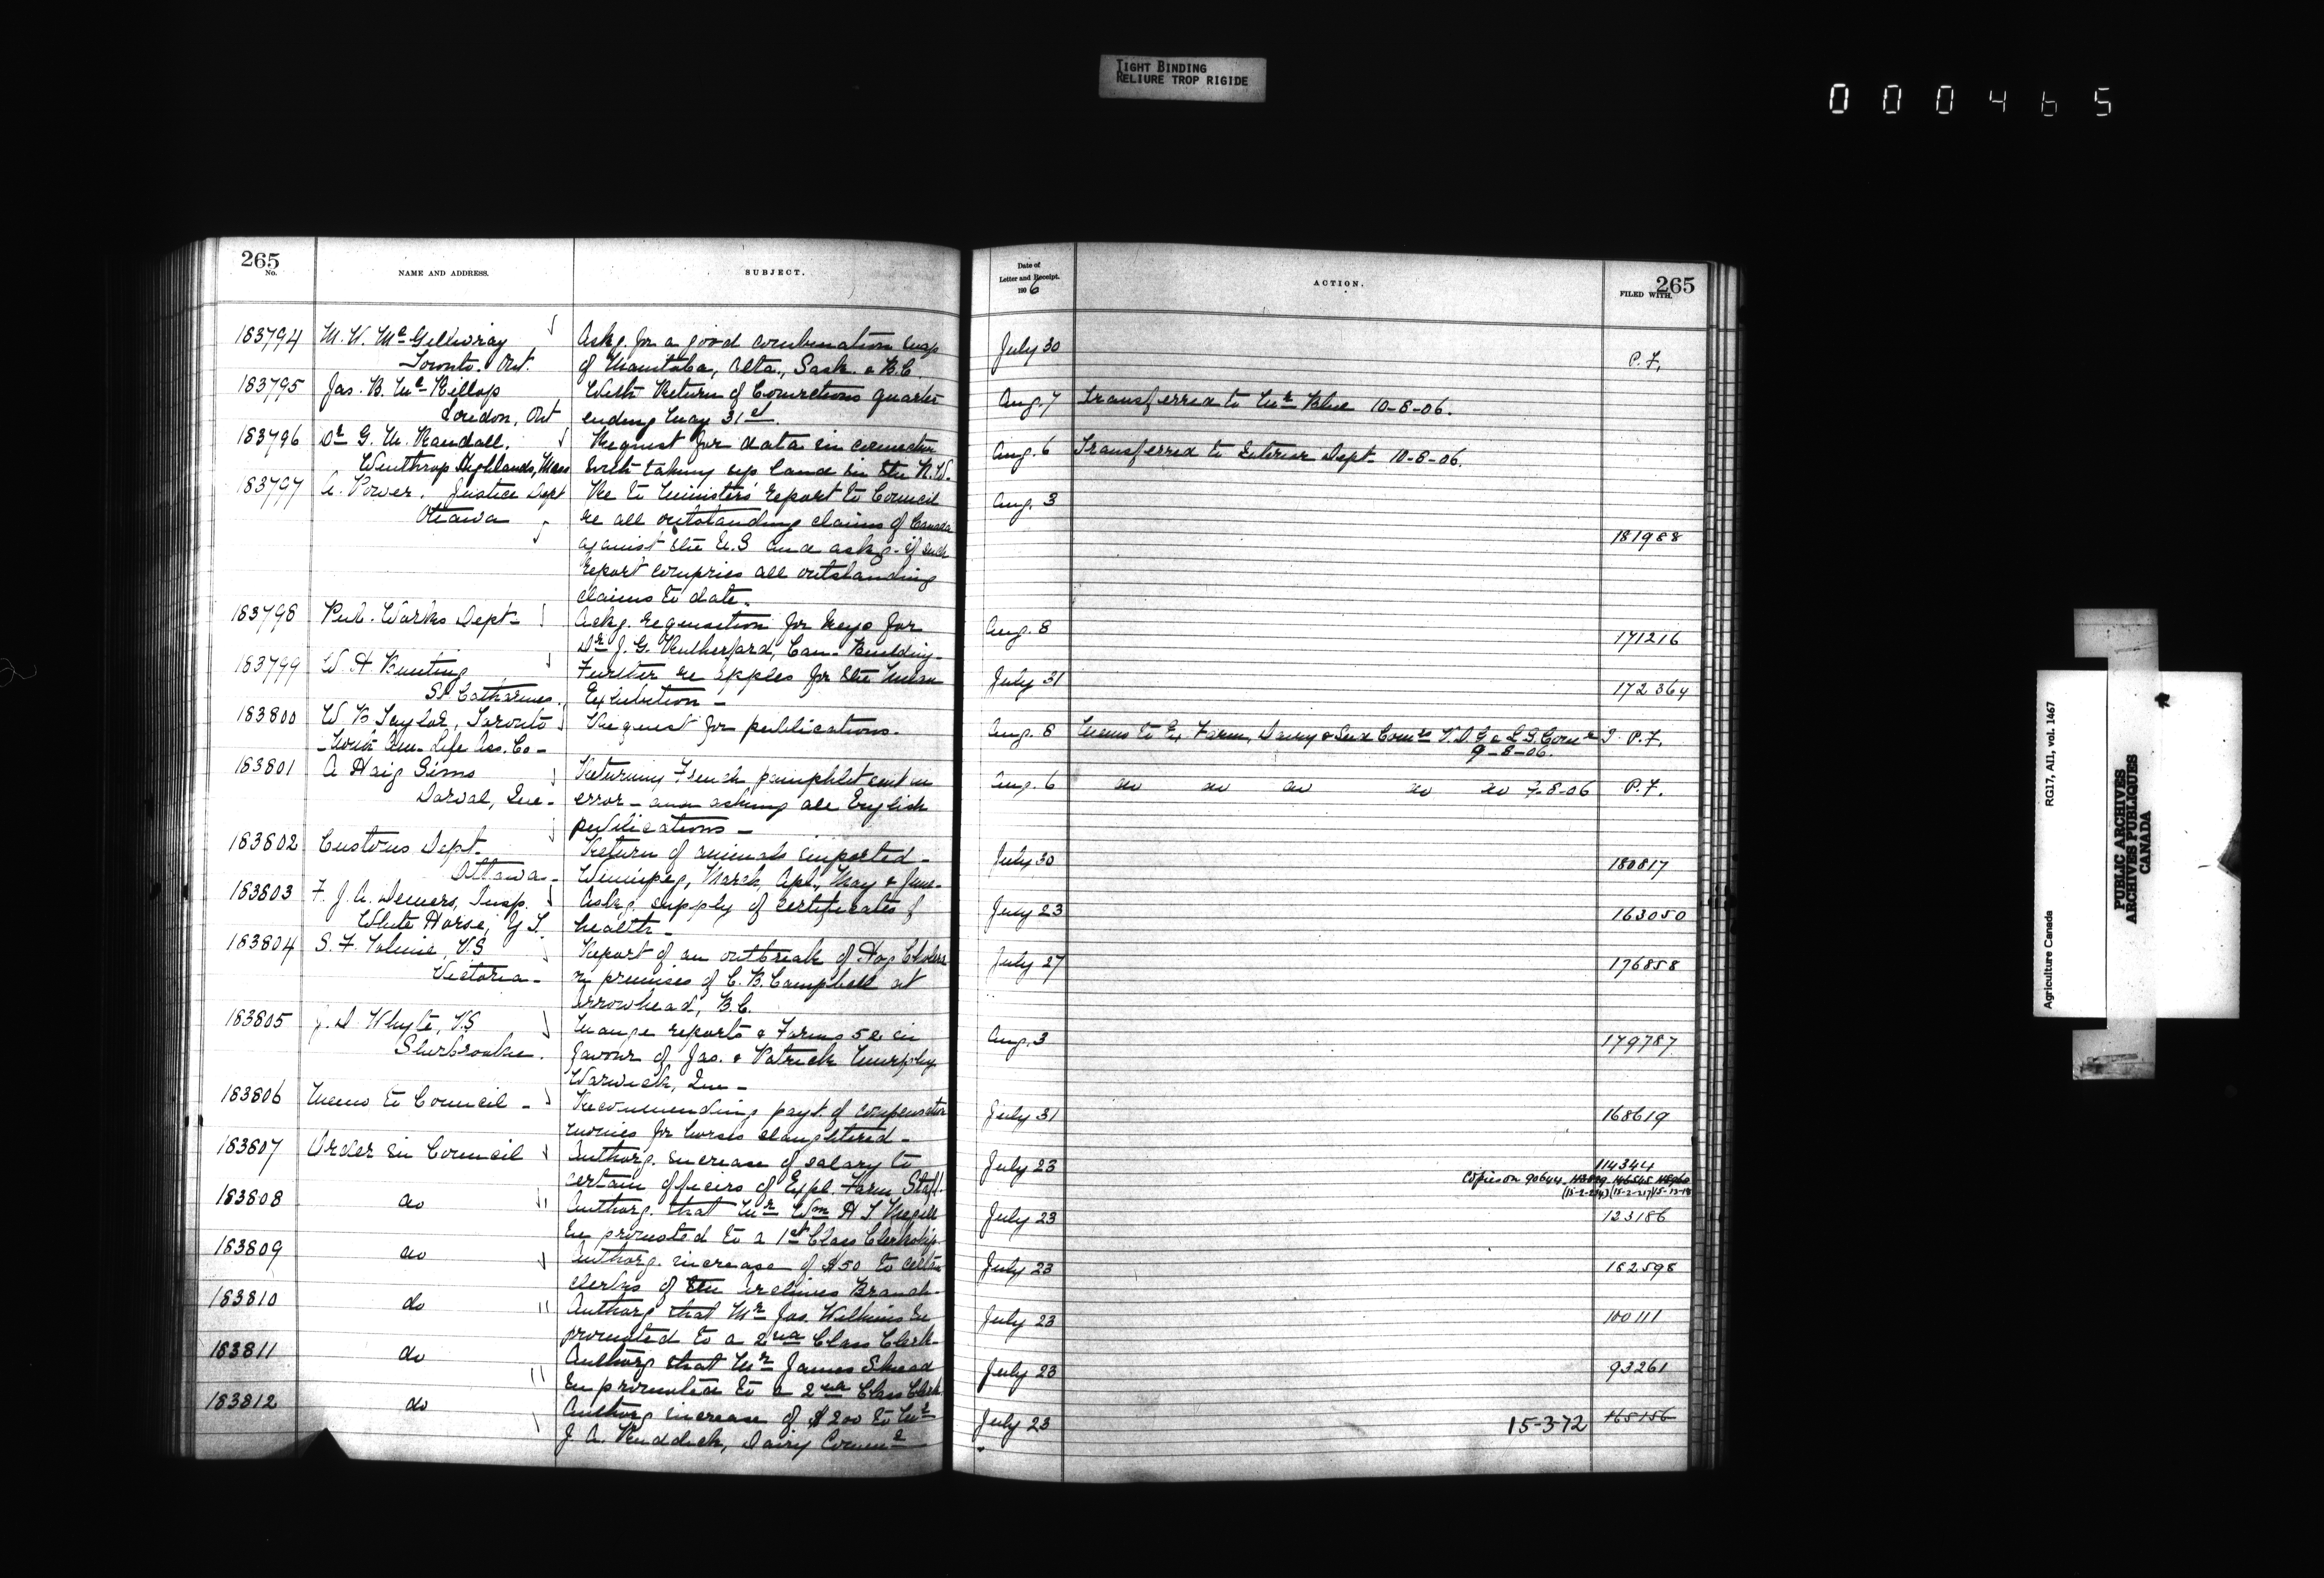 TIGHT BINDING
RELIURE TROP RIGIDE
000465
265
No.
NAME AND ADDRESS.
SUBJECT.
Date of
Letter and Receipt.
1906
ACTION.
265
FILED WITH.
183794 M. W. McGillivray Askg. for a good combination map July 30
Toronto. Ont. of Manitoba, Alta., Sask. & B.C. P.F.
183795 Jas. B. McKillop With Return of Convictions quarter
London, Ont ending May 31st. Aug. 7 Transferred to Mr Blue 10-8-06.
183796 Dr G. M. Randall. Request for data in connection
Winthrop Highlands, Mass with taking up land in the N.W. Aug. 6 Transferred to Interior Dept. 10-8-06.
183797 A. Power. Justice Dept Re to Ministers' report to Council Aug. 3
Ottawa re all outstanding claims of Canada
against the U.S and askg. if such 181988
report comprises all outstanding
claims to date.
183798 Pub. Works Dept- Askg. requisition for keys for Aug. 8
Dr J. G. Rutherford, Can. Building- 171216
183799 W. H. Bunting Further re apples for the Milan July 31
St Catharines. Exhibition - 172364
183800 W B Taylor, Toronto Request for publications. Aug. 8 Memo to Ex Farm, Dairy & Seed Comrs V.D.G & L.S. Comr P.F.
North Am- Life Ass. Co- 9-8-06.
183801 A Haig Sims Returning French pamphlet sent in Aug. 6 do do do do do 9-8-06 P.F.
Dorval, Que- error - and asking all English
publications -
183802 Customs Dept- Return of animals imported-
Ottawa- Winnipeg, March, Apl., May & June- July 30 180817
183803 F. J. A. Demers, Insp. Askg. supply of certificates of July 23 163050
White Horse, Y T. health-
183804 S. F. Tolmie, V.S Report of an outbreak of Hog Cholera July 27 176858
Victoria- on premises of C. B. Campbell at
Arrowhead, B.C.
183805 J. D. Whyte, V.S Mange reports & Forms 52 in Aug. 3 179787
Sherbrooke. favour of Jas. & Patrick Murphy
Warwick, Que-
183806 Memo to Council - Recommending payt. of compensation July 31 168619
monies for horses slaughtered-
183807 Order in Council Authorg. increase of salary to July 23 114344
certain officers of Expl. Farm Staff. Copies on 90644
183808 do Authorg. that Mr Wm H T Megill July 23 123186
be promoted to a 1st Class Clerkship-
183809 do Authorg. increase of $50 to certain July 23 182598
clerks of the Archives Branch-
183810 do Authorg that Mr Jas. Wilkins be July 23 100111
promoted to a 2nd Class Clerk-
183811 do Authorg that Mr James Skead July 23 93261
be promoted to a 2nd Class Clerk.
183812 do Authorg increase of $200 to Mr July 23 15-3-72 165156
J A. Ruddick, Dairy Commr
Agriculture Canada RG17, AII, vol. 1467
PUBLIC ARCHIVES
ARCHIVES PUBLIQUES
CANADA